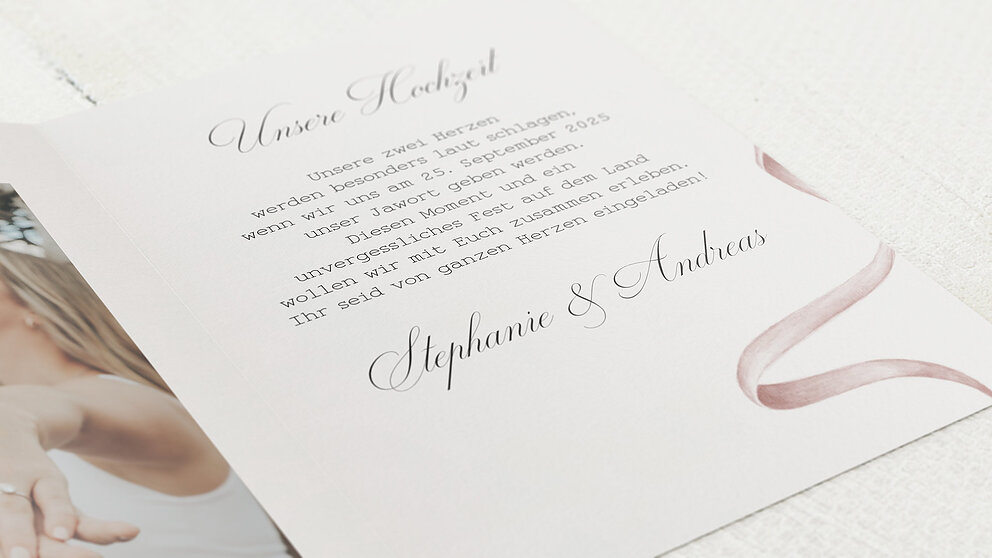 Unsere Hochzeit
Unsere zwei Herzen
werden besonders laut schlagen,
wenn wir uns am 25. September 2025
unser Jawort geben werden.
Diesen Moment und ein
unvergessliches Fest auf dem Land
wollen wir mit Euch zusammen erleben.
Ihr seid von ganzen Herzen eingeladen!
Stephanie & Andreas